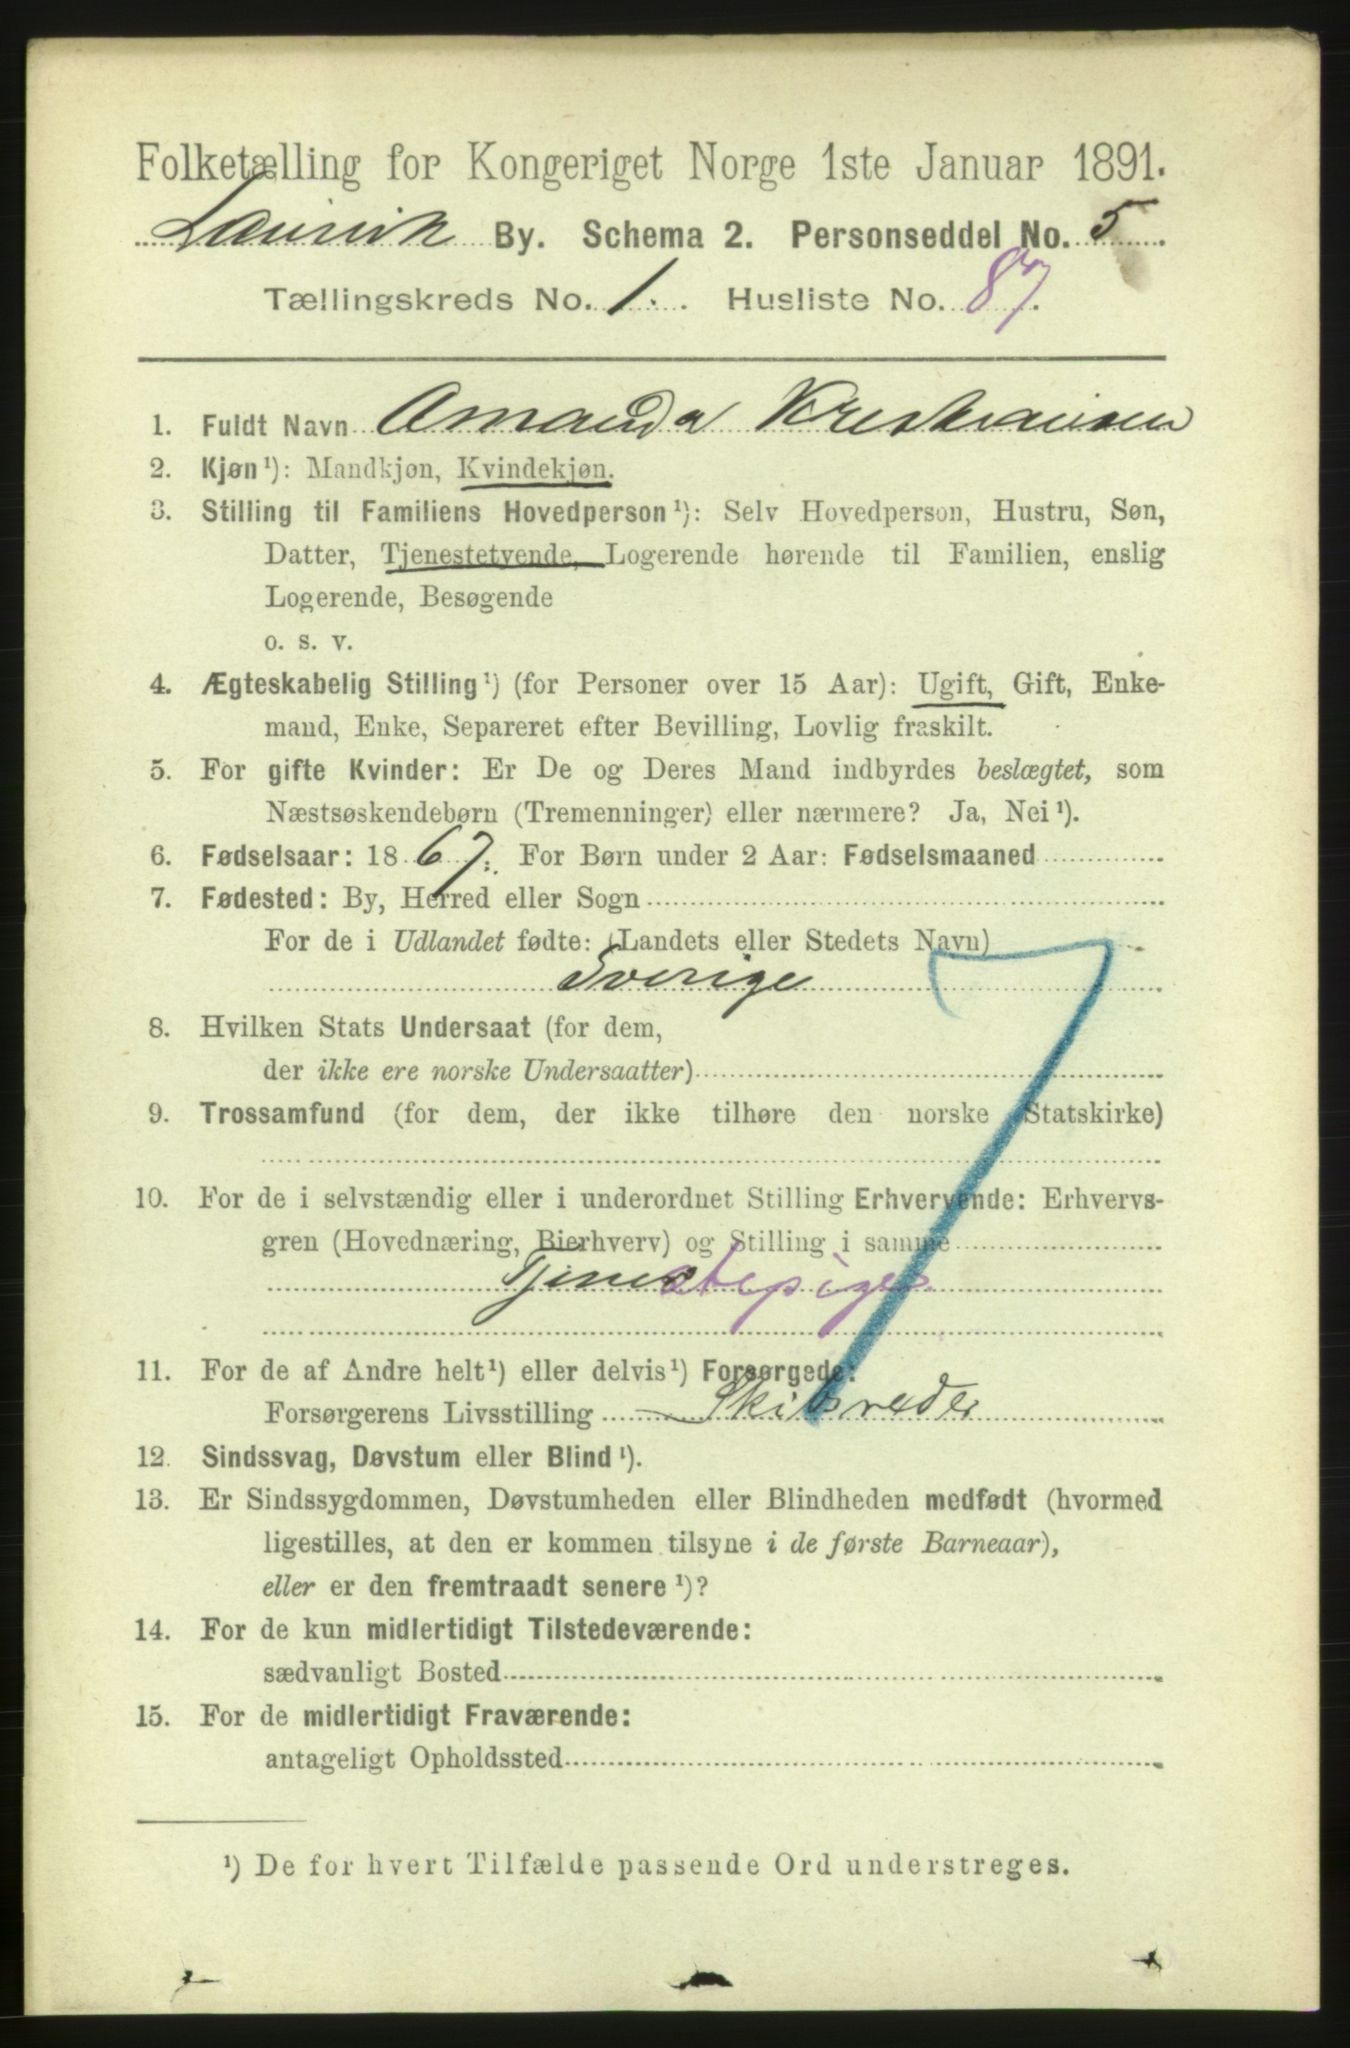 Folketælling for Kongeriget Norge 1ste Januar 1891.
Laurvik By. Schema 2. Personseddel No. 5
Tællingskreds No. 1. Husliste No. 87.
1. Fuldt Navn Amanda Kristiansen
2. Kjøn¹): Mandkjøn, Kvindekjøn.
3. Stilling til Familiens Hovedperson¹): Selv Hovedperson, Hustru, Søn,
Datter, Tjenestetyende, Logerende hørende til Familien, enslig
Logerende, Besøgende
o. s. v.
4. Ægteskabelig Stilling¹) (for Personer over 15 Aar): Ugift, Gift, Enke-
mand, Enke, Separeret efter Bevilling, Lovlig fraskilt.
5. For gifte Kvinder: Er De og Deres Mand indbyrdes beslægtet, som
Næstsøskendebørn (Tremenninger) eller nærmere? Ja, Nei¹).
6. Fødselsaar: 1867. For Børn under 2 Aar: Fødselsmaaned
7. Fødested: By, Herred eller Sogn
For de i Udlandet fødte: (Landets eller Stedets Navn)
Sverige
8. Hvilken Stats Undersaat (for dem,
der ikke ere norske Undersaatter)
9. Trossamfund (for dem, der ikke tilhøre den norske Statskirke)
10. For de i selvstændig eller i underordnet Stilling Erhvervende: Erhvervs-
gren (Hovednæring, Bierhverv) og Stilling i samme
Tjenestepige
11. For de af Andre helt¹) eller delvis¹) Forsørgede:
Forsørgerens Livsstilling Skibsreder
12. Sindssvag, Døvstum eller Blind¹).
13. Er Sindssygdommen, Døvstumheden eller Blindheden medfødt (hvormed
ligestilles, at den er kommen tilsyne i de første Barneaar),
eller er den fremtraadt senere¹)?
14. For de kun midlertidigt Tilstedeværende:
sædvanligt Bosted
15. For de midlertidigt Fraværende:
antageligt Opholdssted
7
¹) De for hvert Tilfælde passende Ord understreges.